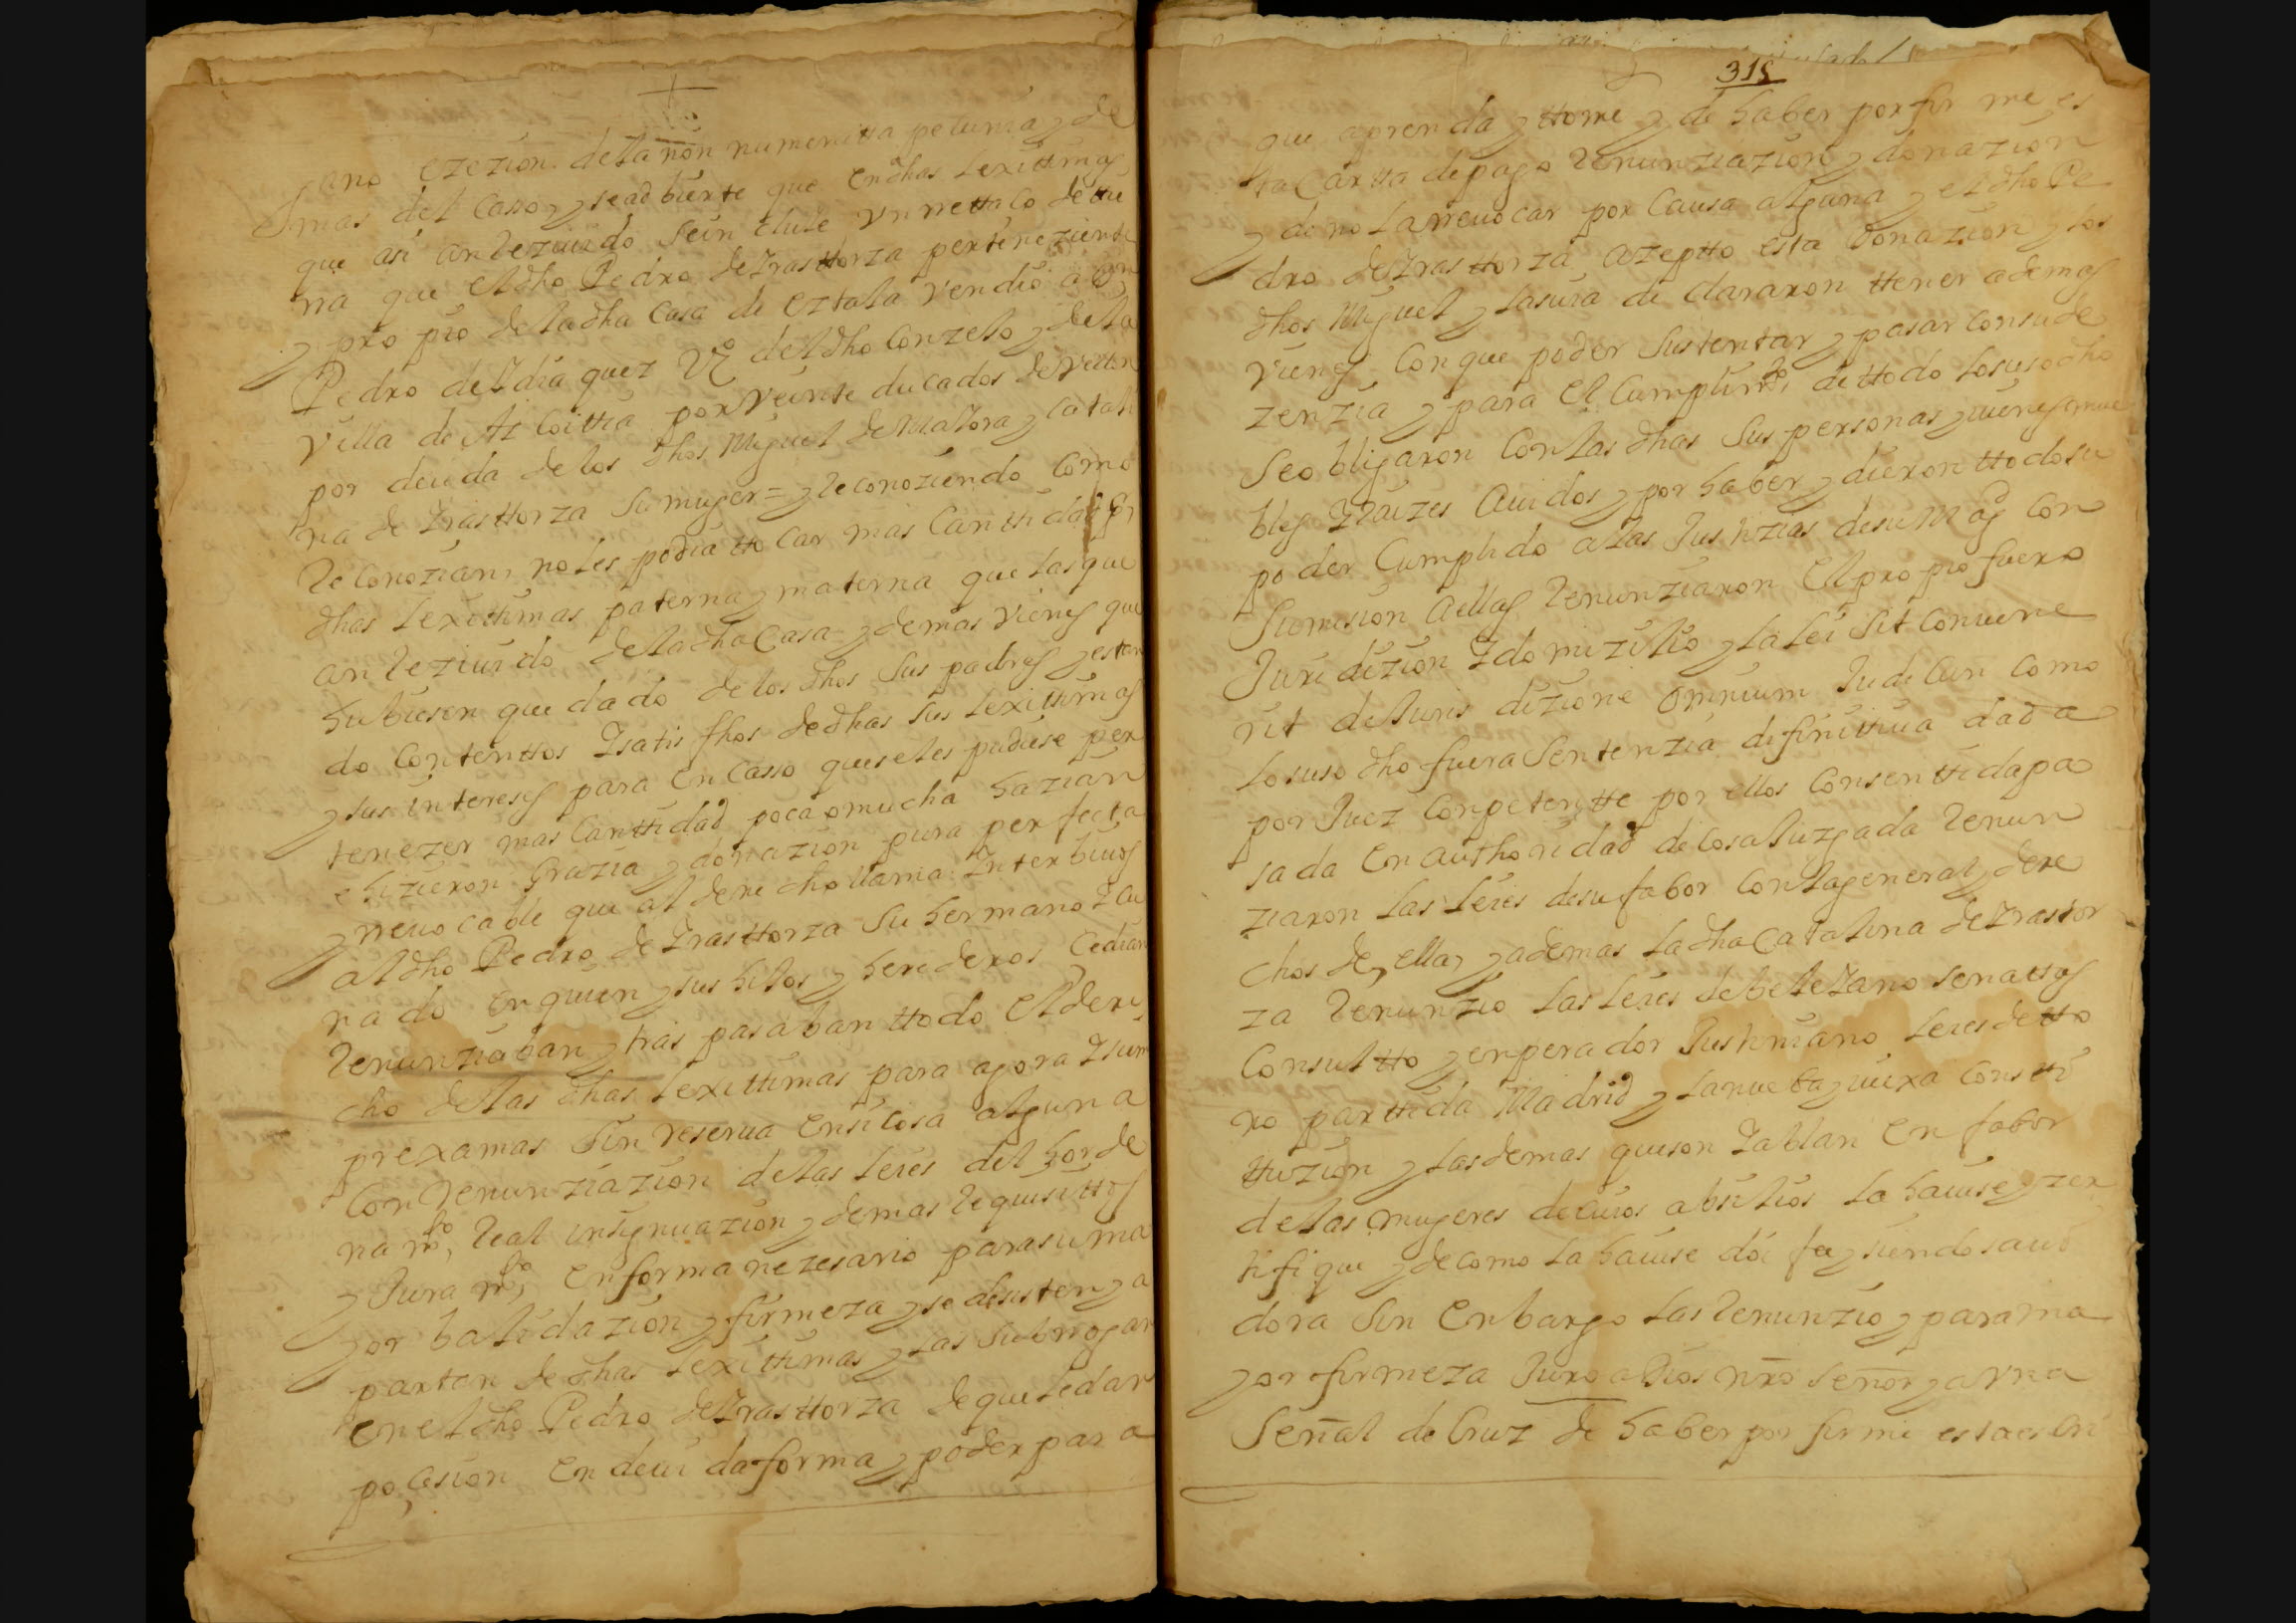 ono ezezion dela non numeratta pecunia y de
mas del casso y se adbierte que en dhas lexittimas
que asi an rezevido se in clute vn rrettaco de ttie
rra que el dho Pedro de Yrasttorza perteneziente
y pro pio de la dha casa de Eztala vendio a Dn
Pedro de Ydia quez Vº del dho conzelo y de la
villa de Az coittia por veinte ducados de vellon
por deuda de los dhos Miguel de Malora y catali
na de Yrasttorza su muger = y reconoziendo como
reconozian, no les podia tto car mas canttidad por
dhas lexittimas paterna y materna que las que
an reziuido de la dha casa y demas vienes que
hubiesen que dado de los dhos sus padres y estan
do conttenttos Ysatis fhos de dhas sus lexittimas
y sus intereses para en casso que se les pudiese per
tenezer mas canttidad poca o mucha hazian
e hizieron grazia y donazion pura perfecta
y rreuocable que al derecho llama Ynterbiuos
al dho Pedro de Yrasttorza su hermano Y au
na do en quien y sus hilos y herederos cedian
renunziaban y tras pasaban ttodo el dere
cho de las dhas lexittimas para agora Y siem
prexamas sin reserua en si cosa alguna
con renunziazion de las leies del hor de
na mto, real insignuazion y demas requisittos
y Jura mto, en forma nezesario para su ma
yor balidazion y firmeza y se desisten y a
parten de dhas lexittimas y las subrrogan
en el dho Pedro de Yrasttorza de que le dan
poçesion en deui da forma y poder para
315
que aprenda y ttome y de haber por fir me es
ta cartta de pago renunziazion y donazion
y de no la rreuocar por causa alguna y el dho Pe
dro de Yrasttorza azeptto esta donazion y los
dhos Miguel y la suia de clararon ttener ademas
vienes con que poder sustentar y pasar con su de
zenzia y para el cumplimto, de ttodo lo susodho
se obligaron con las dhas sus personas y vienes mue
bles Yraizes auidos y por haber y dieron ttodo su
poder cumplido a las Justizias de su Magd con
sumision a ellas renunziaron el pro pio fuero
Juri dizion Y do mizilio y la lei sit conuene
rit de Juris dizione omnium Judi cun como
lo suso dho fuera sentenzia difinittiua dada
por Juez conpetentte por ellos consenttida pa
sada en authoridad de cosa Juzgada renun
ziaron las leies de su fabor con la general y dere
chos de, ella, y ademas la dha Catalina de Yrastor
za renunzio las leies de beleLano senatus
consultto y enperador Justiniano leies de tto
ro parttida Madrid y la nueba y vieixa constti
ttuzion y las demas que son Y ablan en fabor
de las mugeres de cuios absilios la hauise y zer
tifi que y de como la hauise doi fee y siendo saui
dora sin enbargo las renunzio y para ma
yor firmeza Juro a Dios nro señor y a vna
señal de cruz de haber por firme esta escri